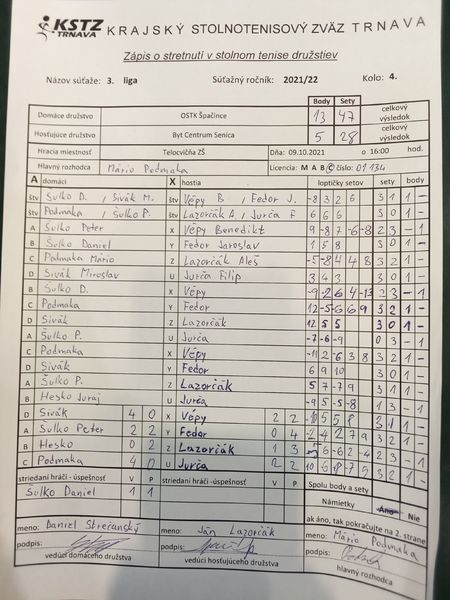 KSTZ TRNAVA KRAJSKÝ STOLNOTENISOVÝ ZVÄZ TRNAVA
Zápis o stretnutí v stolnom tenise družstiev
Názov súťaže: 3. liga Súťažný ročník: 2021/22 Kolo: 4.
Body Sety celkový výsledok
Domáce družstvo OSTK Špačince 13 47
Hosťujúce družstvo Byt Centrum Senica 5 28 celkový výsledok
Hracia miestnosť Telocvičňa ZŠ Dňa: 09.10.2021 o 16:00 hod.
Hlavný rozhodca Mário Podmaka Licencia: M A B C číslo: 01134
A domáci X hostia loptičky setov sety body
štv Šulko D. / Sivák M. štv Vépy B / Fedor J. -8 3 2 6 3 1 1 -
štv Podmaka / Šulko P. štv Lazorčák A / Jurča F 6 6 6 3 0 1 -
A Šulko Peter X Vépy Benedikt 9 -8 7 -6 -8 2 3 - 1
B Šulko Daniel Y Fedor Jaroslav 1 5 8 3 0 1 -
C Podmaka Mário Z Lazorčák Aleš -5 -8 4 4 8 3 2 1 -
D Sivák Miroslav U Jurča Filip 3 4 3 3 0 1 -
B Šulko D. X Vépy -9 -2 6 4 -13 2 3 - 1
C Podmaka Y Fedor 12 -5 -6 6 9 3 2 1 -
D Sivák Z Lazorčák 12 5 5 3 0 1 -
A Šulko P. U Jurča -7 -6 -9 0 3 - 1
C Podmaka X Vépy -11 2 -6 3 8 3 2 1 -
D Sivák Y Fedor 6 9 10 3 0 1 -
A Šulko P. Z Lazorčák 5 7 -7 9 3 1 1 -
B Hesko Juraj U Jurča -9 5 -5 -8 1 3 - 1
D Sivák 4 0 X Vépy 2 2 -10 5 5 8 3 1 1 -
A Šulko Peter 2 2 Y Fedor 0 4 2 7 9 3 2 1 -
B Hesko 0 2 Z Lazorčák 1 3 2 3 - 1
C Podmaka 4 0 U Jurča 2 2 3 2 1 -
striedaní hráči - úspešnosť V P striedaní hráči - úspešnosť V P Spolu body a sety
Šulko Daniel 1 1 Námietky Áno Nie
ak áno, tak pokračujte na 2. strane
meno: Daniel Strečanský meno: Ján Lazorčák meno: Mário Podmaka
podpis: podpis: podpis:
vedúci domáceho družstva vedúci hosťujúceho družstva hlavný rozhodca